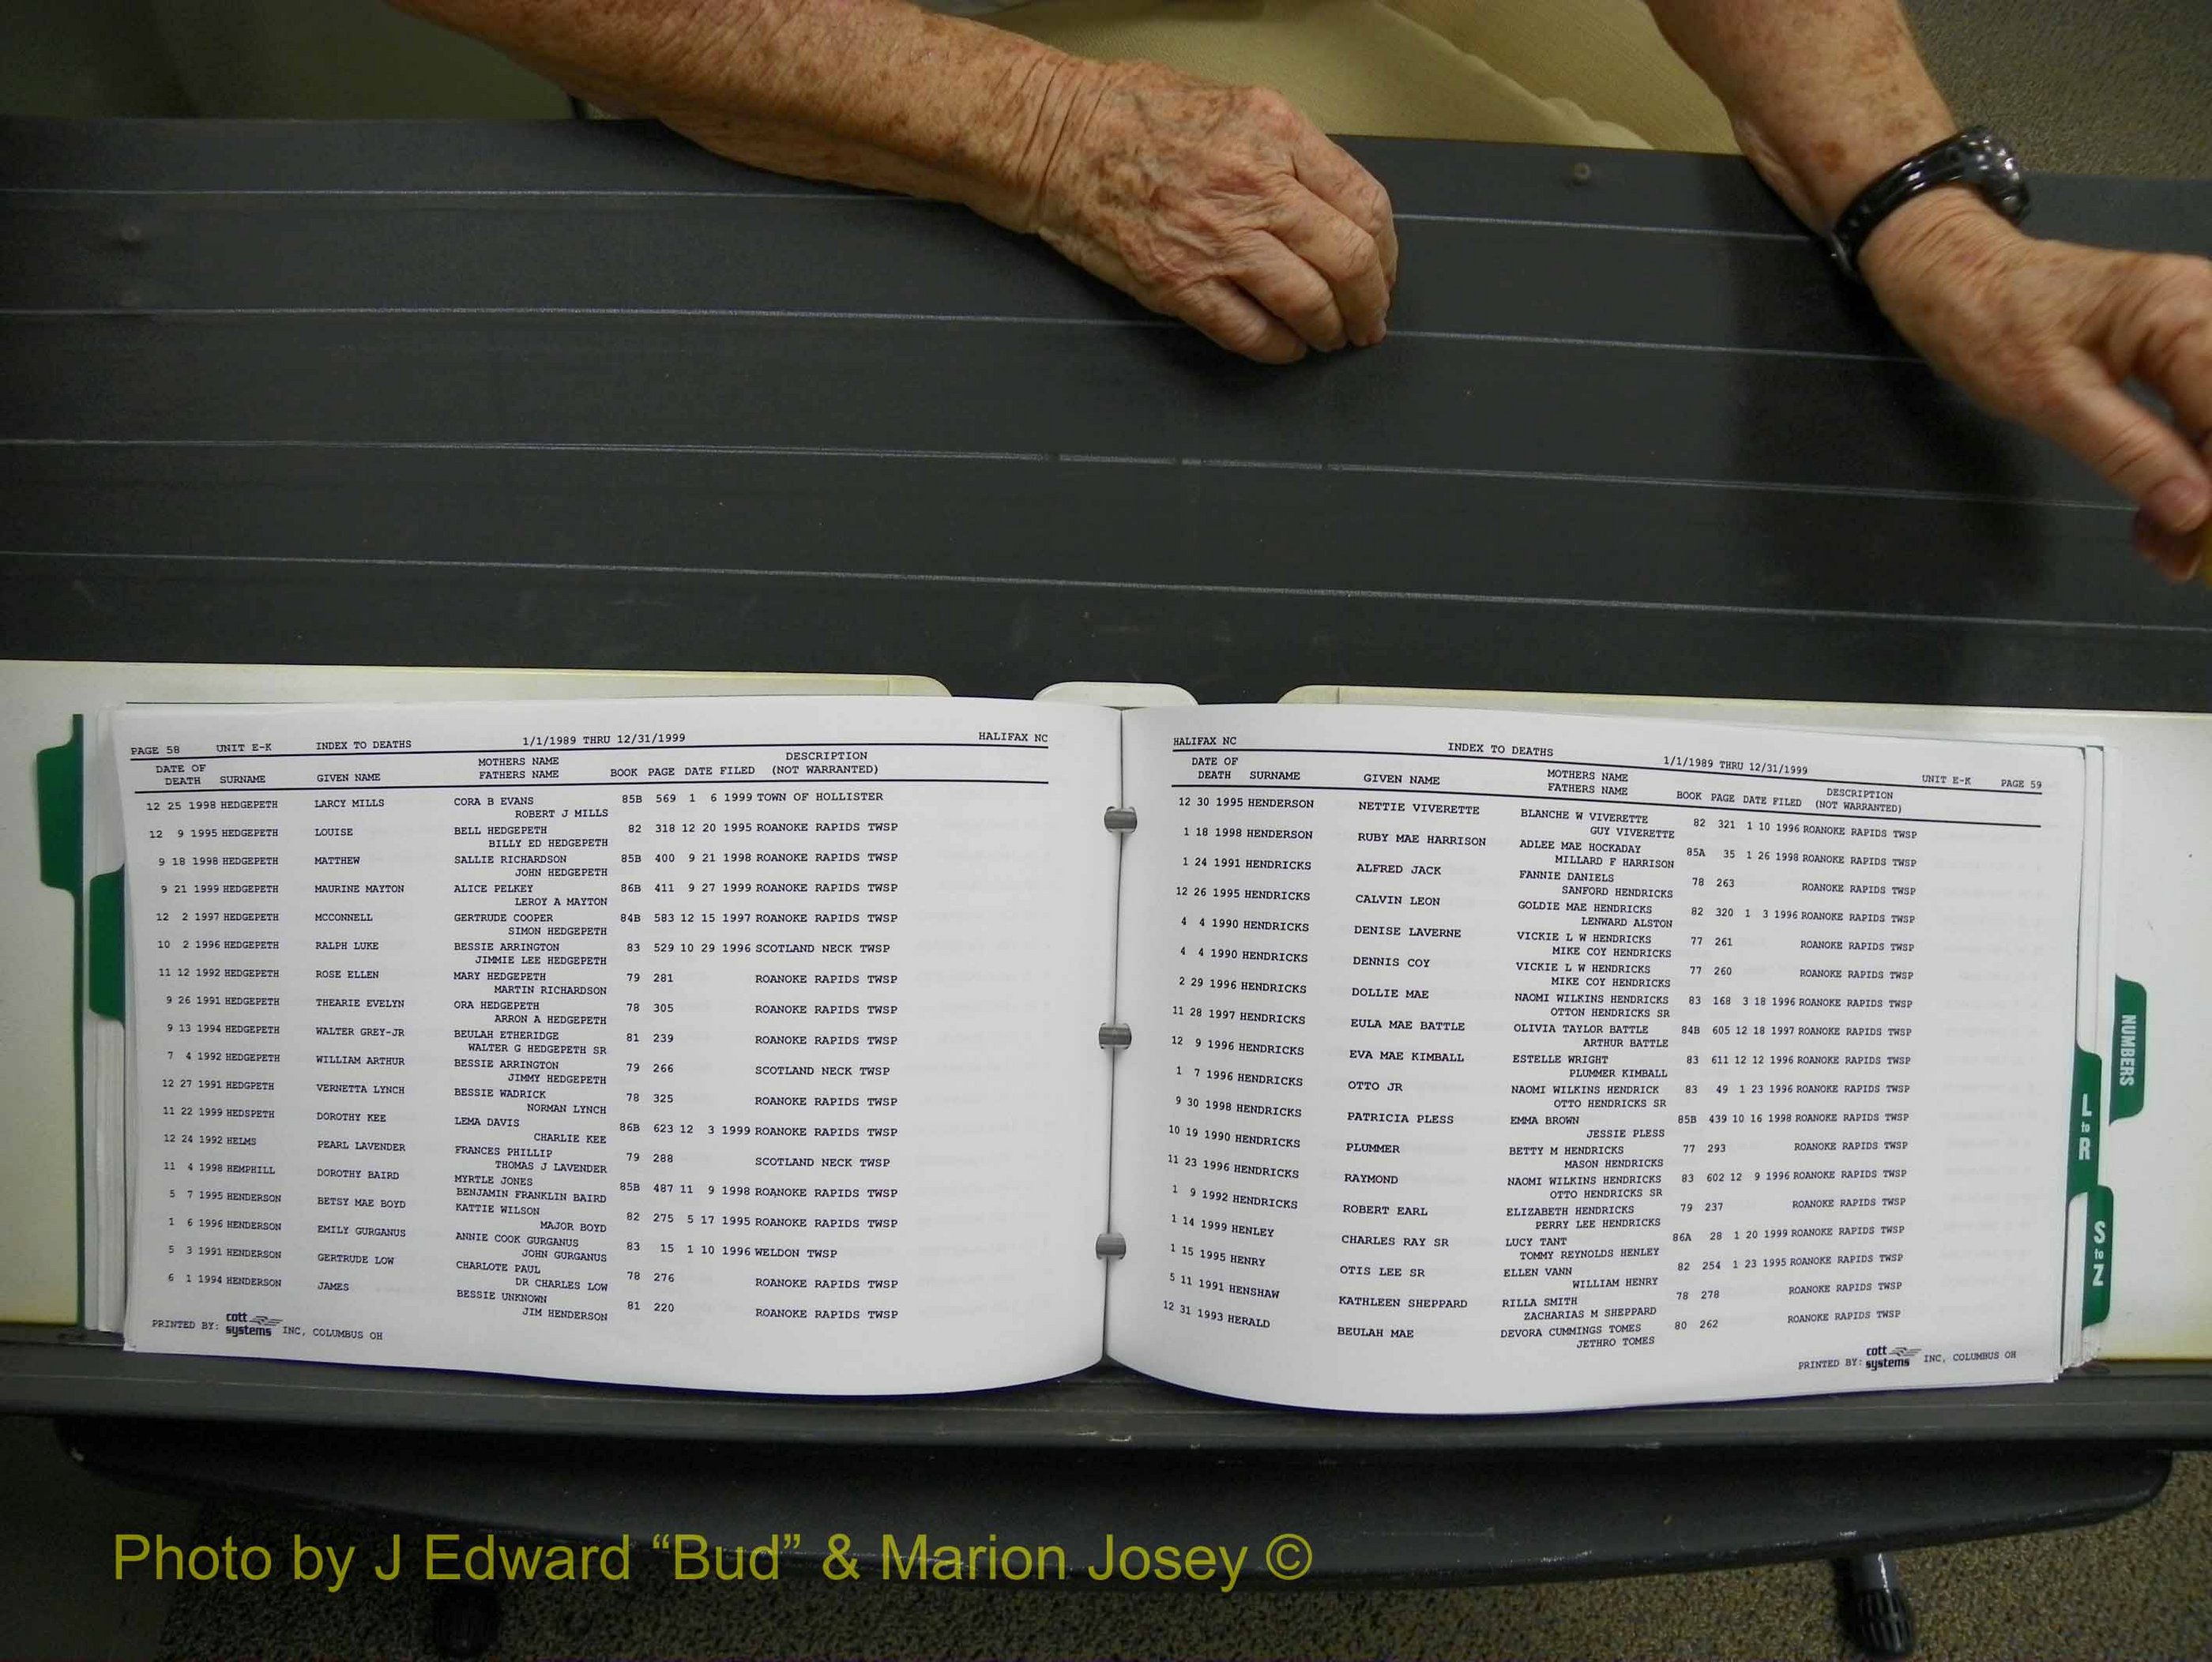 PAGE 58 UNIT E-K INDEX TO DEATHS 1/1/1989 THRU 12/31/1999 HALIFAX NC
DATE OF DEATH SURNAME GIVEN NAME MOTHERS NAME FATHERS NAME BOOK PAGE DATE FILED DESCRIPTION (NOT WARRANTED)
12 25 1998 HEDGEPETH LARCY MILLS CORA B EVANS 85B 569 1 6 1999 TOWN OF HOLLISTER
ROBERT J MILLS
12 9 1995 HEDGEPETH LOUISE BELL HEDGEPETH 82 318 12 20 1995 ROANOKE RAPIDS TWSP
BILLY ED HEDGEPETH
9 18 1998 HEDGEPETH MATTHEW SALLIE RICHARDSON 85B 400 9 21 1998 ROANOKE RAPIDS TWSP
JOHN HEDGEPETH
9 21 1999 HEDGEPETH MAURINE MAYTON ALICE PELKEY 86B 411 9 27 1999 ROANOKE RAPIDS TWSP
LEROY A MAYTON
12 2 1997 HEDGEPETH MCCONNELL GERTRUDE COOPER 84B 583 12 15 1997 ROANOKE RAPIDS TWSP
SIMON HEDGEPETH
10 2 1996 HEDGEPETH RALPH LUKE BESSIE ARRINGTON 83 529 10 29 1996 SCOTLAND NECK TWSP
JIMMIE LEE HEDGEPETH
11 12 1992 HEDGEPETH ROSE ELLEN MARY HEDGEPETH 79 281 ROANOKE RAPIDS TWSP
MARTIN RICHARDSON
9 26 1991 HEDGEPETH THEARIE EVELYN ORA HEDGEPETH 78 305 ROANOKE RAPIDS TWSP
ARRON A HEDGEPETH
9 13 1994 HEDGEPETH WALTER GREY-JR BEULAH ETHERIDGE 81 239 ROANOKE RAPIDS TWSP
WALTER G HEDGEPETH SR
7 4 1992 HEDGEPETH WILLIAM ARTHUR BESSIE ARRINGTON 79 266 SCOTLAND NECK TWSP
JIMMY HEDGEPETH
12 27 1991 HEDGPETH VERNETTA LYNCH BESSIE WADRICK 78 325 ROANOKE RAPIDS TWSP
NORMAN LYNCH
11 22 1999 HEDSPETH DOROTHY KEE LEMA DAVIS 86B 623 12 3 1999 ROANOKE RAPIDS TWSP
CHARLIE KEE
12 24 1992 HELMS PEARL LAVENDER FRANCES PHILLIP 79 288 SCOTLAND NECK TWSP
THOMAS J LAVENDER
11 4 1998 HEMPHILL DOROTHY BAIRD MYRTLE JONES 85B 487 11 9 1998 ROANOKE RAPIDS TWSP
BENJAMIN FRANKLIN BAIRD
5 7 1995 HENDERSON BETSY MAE BOYD KATTIE WILSON 82 275 5 17 1995 ROANOKE RAPIDS TWSP
MAJOR BOYD
1 6 1996 HENDERSON EMILY GURGANUS ANNIE COOK GURGANUS 83 15 1 10 1996 WELDON TWSP
JOHN GURGANUS
5 3 1991 HENDERSON GERTRUDE LOW CHARLOTE PAUL 78 276 ROANOKE RAPIDS TWSP
DR CHARLES LOW
6 1 1994 HENDERSON JAMES BESSIE UNKNOWN 81 220 ROANOKE RAPIDS TWSP
JIM HENDERSON
PRINTED BY: cott systems INC, COLUMBUS OH
HALIFAX NC INDEX TO DEATHS 1/1/1989 THRU 12/31/1999 UNIT E-K PAGE 59
DATE OF DEATH SURNAME GIVEN NAME MOTHERS NAME FATHERS NAME BOOK PAGE DATE FILED DESCRIPTION (NOT WARRANTED)
12 30 1995 HENDERSON NETTIE VIVERETTE BLANCHE W VIVERETTE 82 321 1 10 1996 ROANOKE RAPIDS TWSP
GUY VIVERETTE
1 18 1998 HENDERSON RUBY MAE HARRISON ADLEE MAE HOCKADAY 85A 35 1 26 1998 ROANOKE RAPIDS TWSP
MILLARD F HARRISON
1 24 1991 HENDRICKS ALFRED JACK FANNIE DANIELS 78 263 ROANOKE RAPIDS TWSP
SANFORD HENDRICKS
12 26 1995 HENDRICKS CALVIN LEON GOLDIE MAE HENDRICKS 82 320 1 3 1996 ROANOKE RAPIDS TWSP
LENWARD ALSTON
4 4 1990 HENDRICKS DENISE LAVERNE VICKIE L W HENDRICKS 77 261 ROANOKE RAPIDS TWSP
MIKE COY HENDRICKS
4 4 1990 HENDRICKS DENNIS COY VICKIE L W HENDRICKS 77 260 ROANOKE RAPIDS TWSP
MIKE COY HENDRICKS
2 29 1996 HENDRICKS DOLLIE MAE NAOMI WILKINS HENDRICKS 83 168 3 18 1996 ROANOKE RAPIDS TWSP
OTTON HENDRICKS SR
11 28 1997 HENDRICKS EULA MAE BATTLE OLIVIA TAYLOR BATTLE 84B 605 12 18 1997 ROANOKE RAPIDS TWSP
ARTHUR BATTLE
12 9 1996 HENDRICKS EVA MAE KIMBALL ESTELLE WRIGHT 83 611 12 12 1996 ROANOKE RAPIDS TWSP
PLUMMER KIMBALL
1 7 1996 HENDRICKS OTTO JR NAOMI WILKINS HENDRICK 83 49 1 23 1996 ROANOKE RAPIDS TWSP
OTTO HENDRICKS SR
9 30 1998 HENDRICKS PATRICIA PLESS EMMA BROWN 85B 439 10 16 1998 ROANOKE RAPIDS TWSP
JESSIE PLESS
10 19 1990 HENDRICKS PLUMMER BETTY M HENDRICKS 77 293 ROANOKE RAPIDS TWSP
MASON HENDRICKS
11 23 1996 HENDRICKS RAYMOND NAOMI WILKINS HENDRICKS 83 602 12 9 1996 ROANOKE RAPIDS TWSP
OTTO HENDRICKS SR
1 9 1992 HENDRICKS ROBERT EARL ELIZABETH HENDRICKS 79 237 ROANOKE RAPIDS TWSP
PERRY LEE HENDRICKS
1 14 1999 HENLEY CHARLES RAY SR LUCY TANT 86A 28 1 20 1999 ROANOKE RAPIDS TWSP
TOMMY REYNOLDS HENLEY
1 15 1995 HENRY OTIS LEE SR ELLEN VANN 82 254 1 23 1995 ROANOKE RAPIDS TWSP
WILLIAM HENRY
5 11 1991 HENSHAW KATHLEEN SHEPPARD RILLA SMITH 78 278 ROANOKE RAPIDS TWSP
ZACHARIAS M SHEPPARD
12 31 1993 HERALD BEULAH MAE DEVORA CUMMINGS TOMES 80 262 ROANOKE RAPIDS TWSP
JETHRO TOMES
PRINTED BY: cott systems INC, COLUMBUS OH
NUMBERS
L to R
S to Z
Photo by J Edward “Bud” & Marion Josey ©